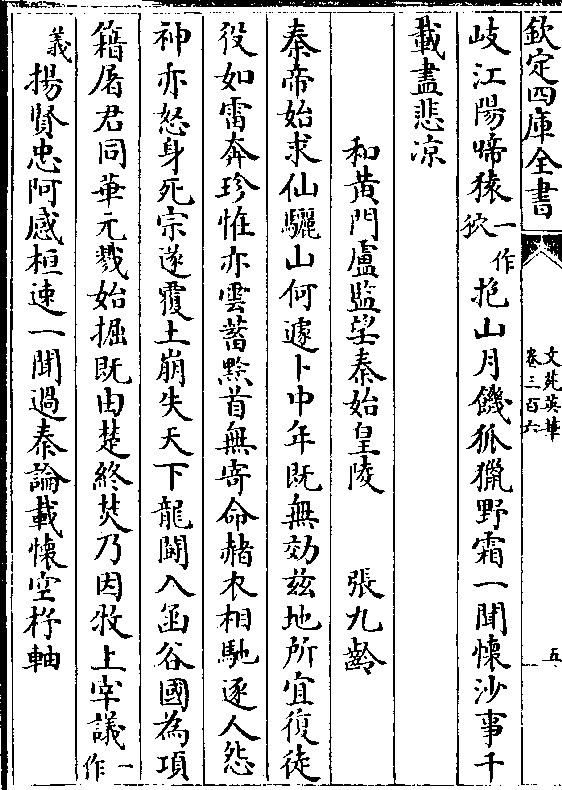 欽定四庫全書
文苑英華
卷三百六
五
岐江陽啼猿一作狖抱山月饑狐獵野霜一聞懷沙事千
載盡悲凉
和黃門盧監望秦始皇陵 張九齡
秦帝始求仙驪山何遽卜中年既無効兹地所宜復徒
役如雷奔珍怪亦雲蓄黔首無寄命赭衣相馳逐人怨
神亦怒身死宗遂覆土崩失天下龍鬬入函谷國為項
籍屠君同華元戮始掘既由楚終焚乃因牧上宰議一作
義揚賢忠阿感桓速一聞過秦論載懷空杼軸